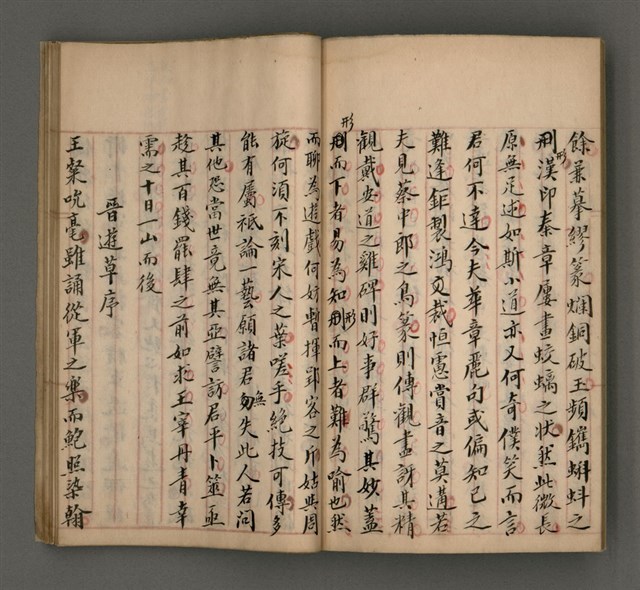 餘兼摹繆篆爛銅破玉頻鐫蝌蚪之
刑形漢印秦章屢畫蛟螭之狀然此微長
原無足述如斯小道亦又何奇僕笑而言
君何不達今夫華章麗句或偏知己之
難逢鉅製鴻文裁恒慮賞音之莫遘若
夫見蔡中郎之鳥篆則傳觀盡訝其精
觀戴安道之雞碑則好事群驚其妙蓋
刑形而下者易為知刑形而上者難為喻也然
而聊為遊戲何妨暫揮郢客之斤姑與周
旋何須不刻宋人之葉嗟乎絕技可傳多
能有屬祇論一藝願諸君勿無失此人若問
其他恐當世竟無其亞譬訪君平卜筮亟
趁其百錢罷肆之前如求王宰丹青幸
需之十日一山而後
晉遊草序
王粲吮毫雖誦從軍之樂而鮑照染翰